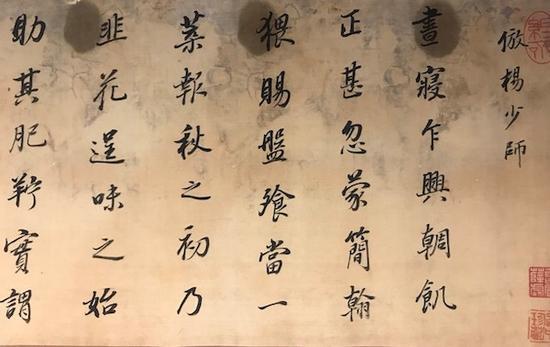 倣楊少師
晝寢乍興輖飢
正甚忽蒙簡翰
猥賜盤飧當一
葉報秋之初乃
韭花逞味之始
助其肥羜實謂